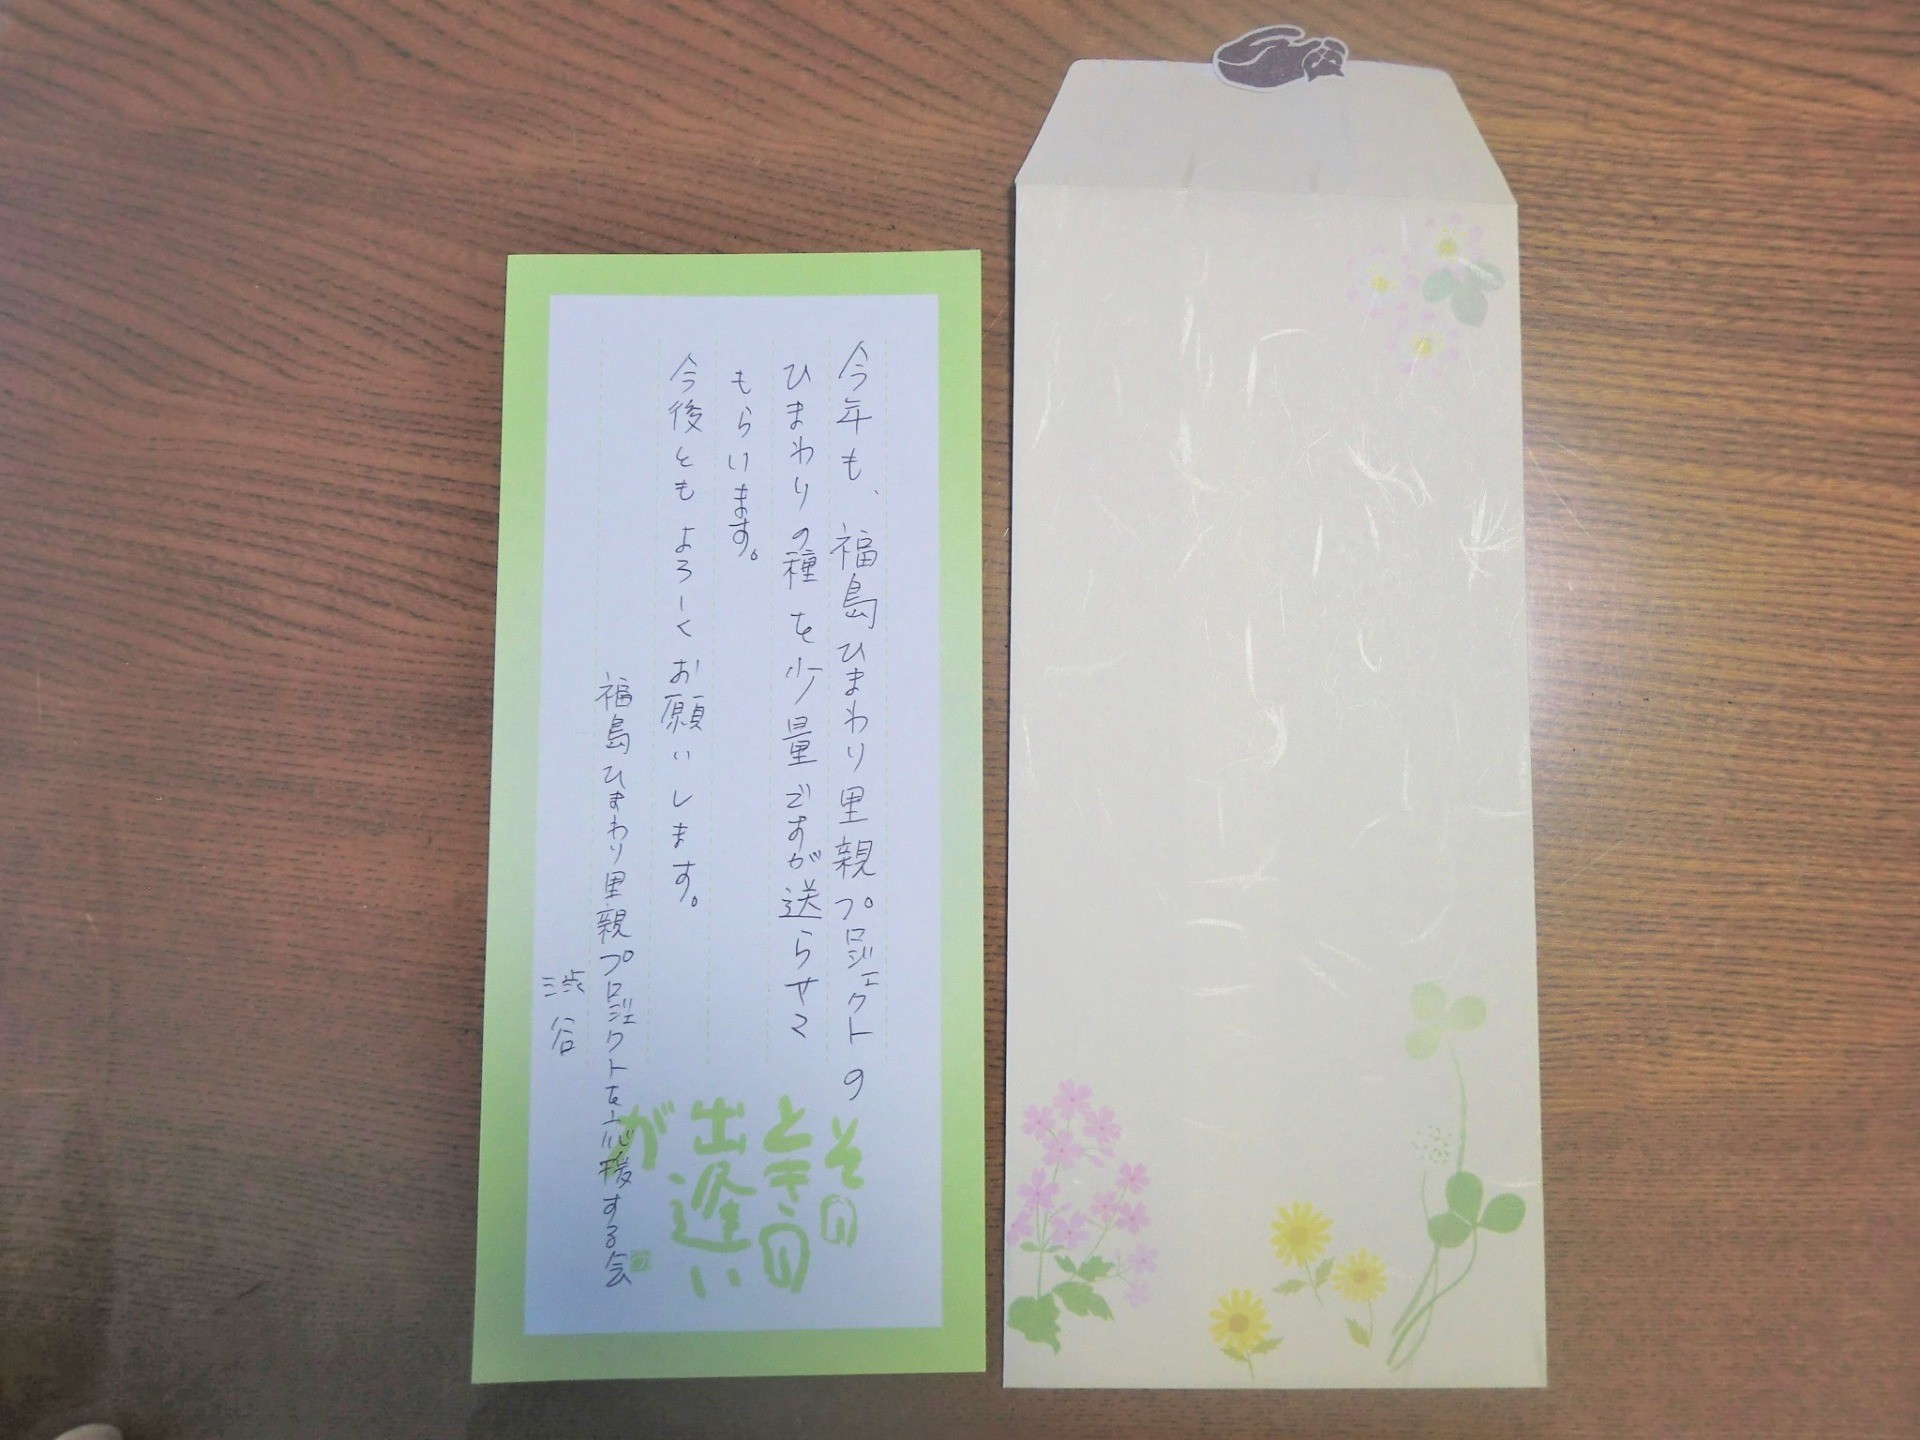 今年も、福島ひまわり里親プロジェクトの
ひまわりの種を少量ですが送らせて
もらいます。
今後ともよろしくお願いします。
福島ひまわり里親プロジェクトを応援する会
渋谷
その
ときの
出逢い
が